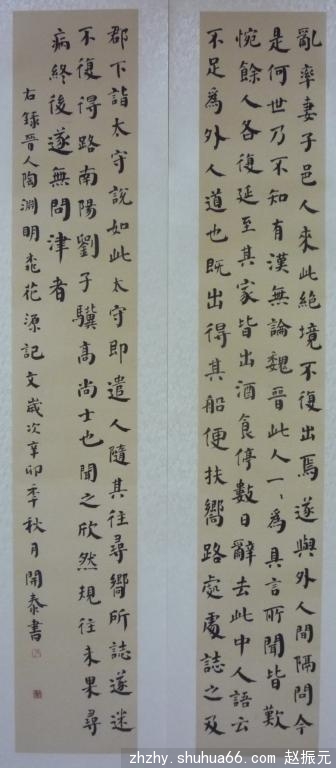 亂率妻子邑人來此絕境不復出焉遂與外人間隔問今
是何世乃不知有漢無論魏晉此人一一為具言所聞皆歎
惋餘人各復延至其家皆出酒食停數日辭去此中人語云
不足為外人道也既出得其船便扶嚮路處處誌之及
郡下詣太守說如此太守即遣人隨其往尋嚮所誌遂迷
不復得路南陽劉子驥高尚士也聞之欣然規往未果尋
病終後遂無問津者
右錄晉人陶淵明桃花源記文歲次辛卯季秋月開泰書
zhzhy.shuhua66.com 赵振元